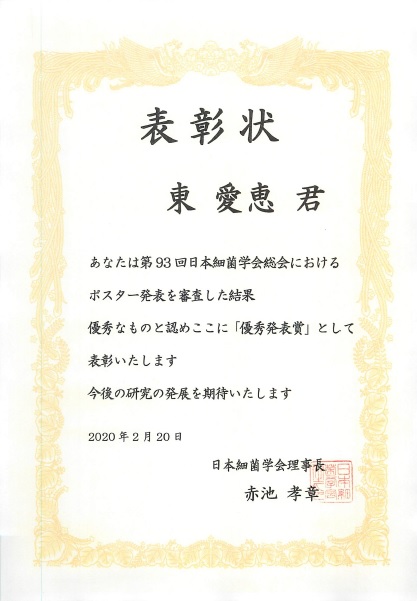 表彰状
東 愛恵 君
あなたは第93回日本細菌学会総会における
ポスター発表を審査した結果
優秀なものと認めここに「優秀発表賞」として
表彰いたします
今後の研究の発展を期待いたします
2020年2月20日
日本細菌学会理事長
赤池 孝章